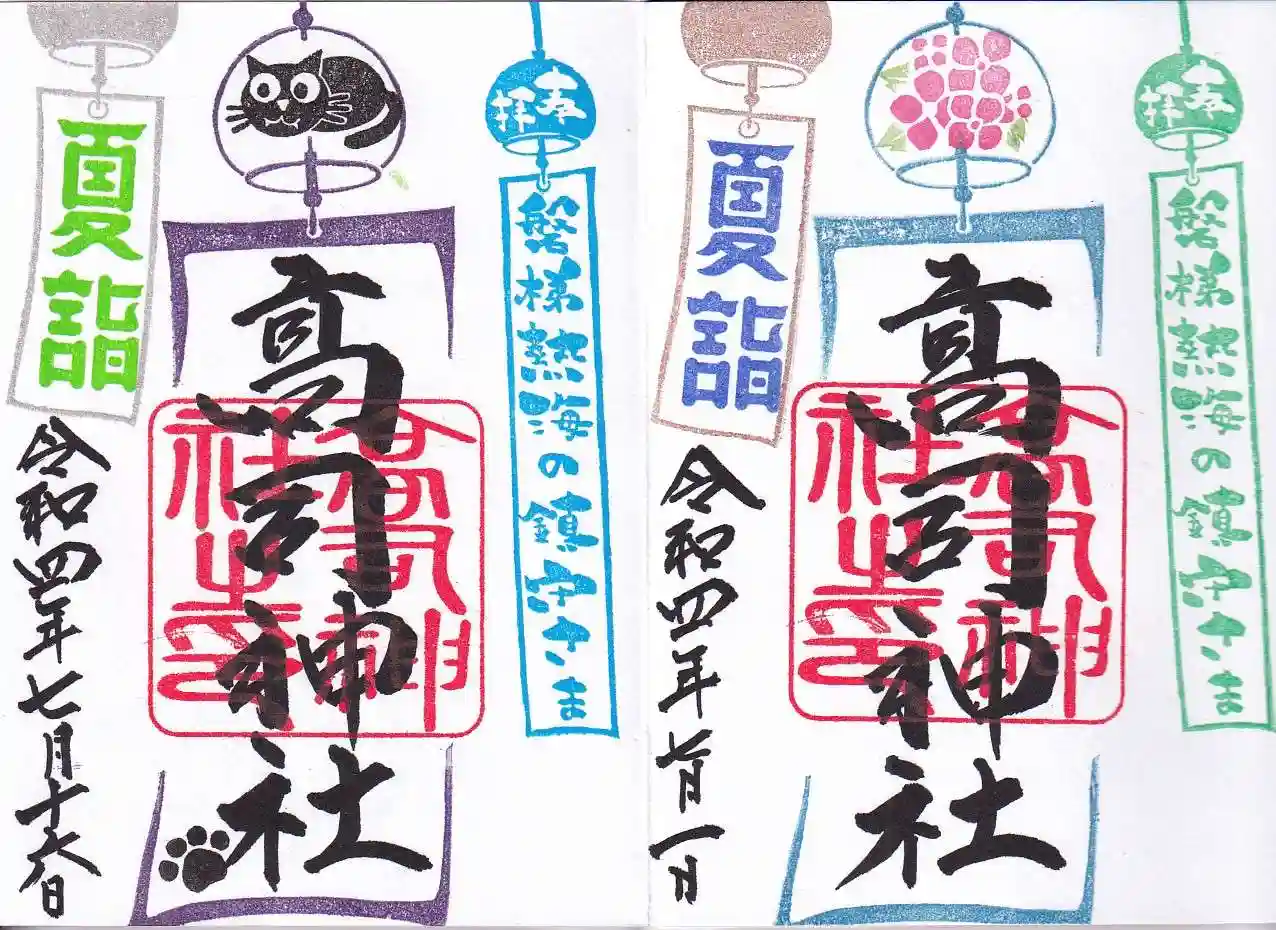 奉拝
磐梯熱海の鎮守さま
高司神社
高司神
社之印
夏詣
令和四年七月一日
奉拝
磐梯熱海の鎮守さま
高司神社
高司神
社之印
夏詣
令和四年七月十六日